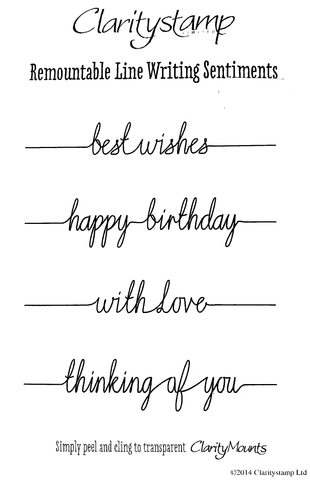 Claritystamp
LIMITED
Remountable Line Writing Sentiments
best wishes
happy birthday
with love
thinking of you
Simply peel and cling to transparent ClarityMounts
©2014 Claritystamp Ltd